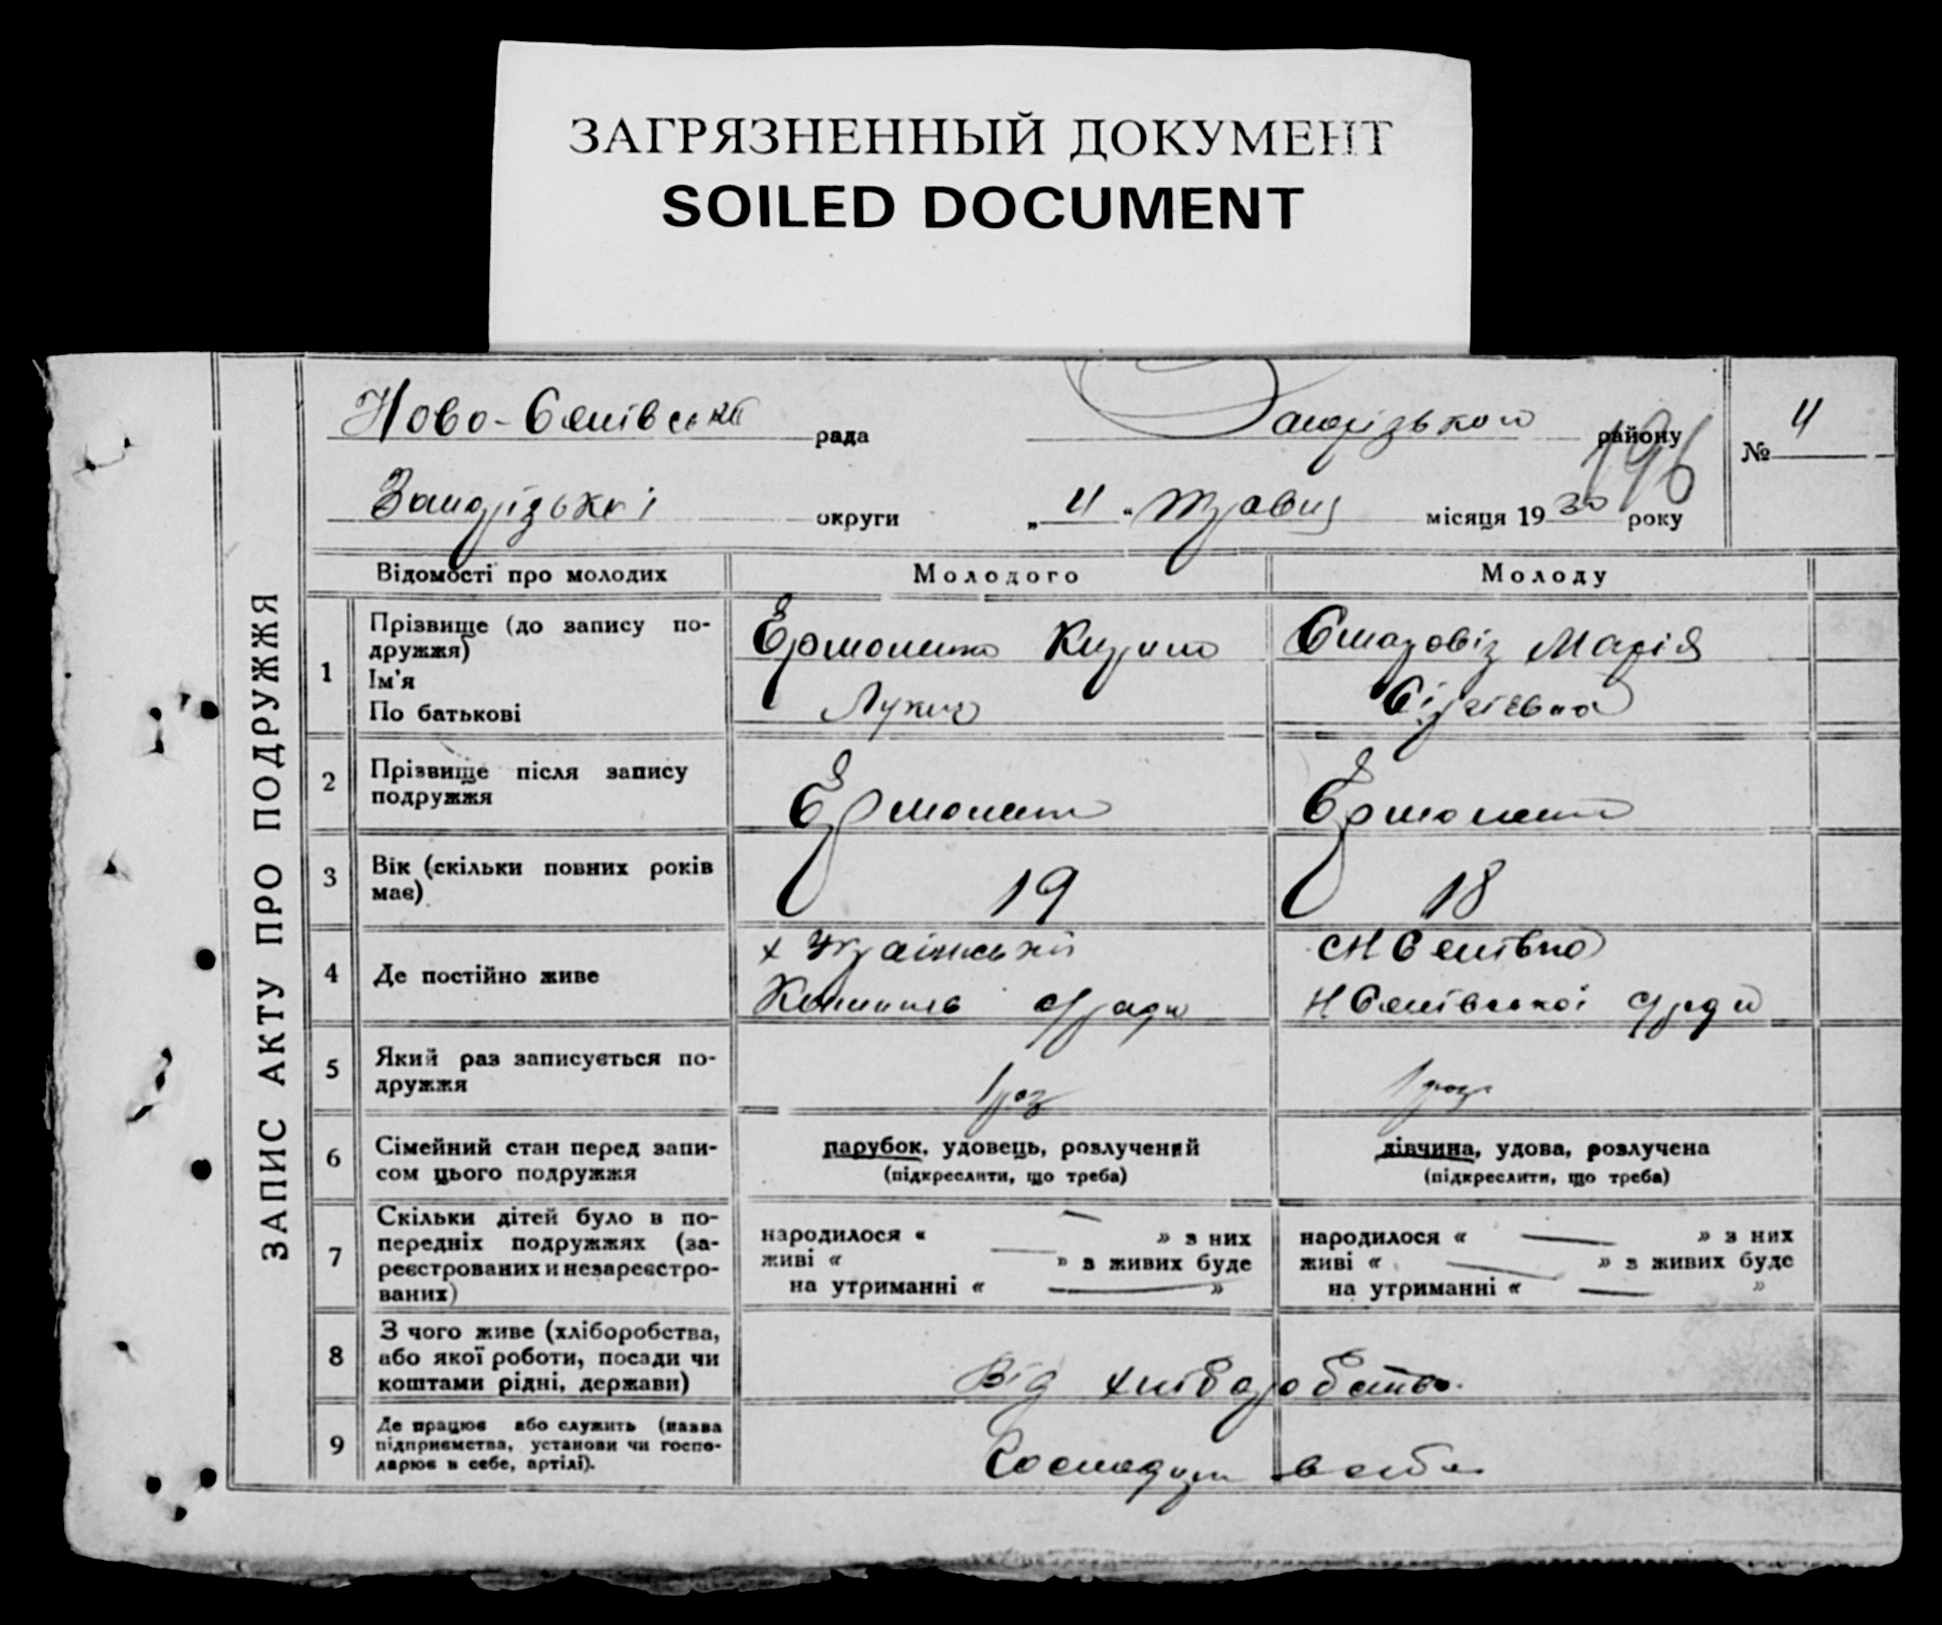 ЗАГРЯЗНЕННЫЙ ДОКУМЕНТ
SOILED DOCUMENT
ЗАПИС АКТУ ПРО ПОДРУЖЖЯ
рада Запорізького району № 4
Запорізької округи „4“ травня місяця 1930 року
196
Відомості про молодих Молодого Молоду
1 Прізвище (до запису по-
дружжя)
Ім'я
По батькові
Марія
Лукич Сергієвна
2 Прізвище після запису
подружжя
3 Вік (скільки повних років
має)
19 18
4 Де постійно живе
5 Який раз записується по-
дружжя
1 раз 1 раз
6 Сімейний стан перед запи-
сом цього подружжя
парубок, удовець, розлучений
(підкреслити, що треба)
дівчина, удова, розлучена
(підкреслити, що треба)
7 Скільки дітей було в по-
передніх подружжях (за-
реєстрованих и незареєстро-
ваних)
народилося « — » з них
живі « — » з живих буде
на утриманні « — »
народилося « — » з них
живі « — » з живих буде
на утриманні « — »
8 З чого живе (хліборобства,
або якої роботи, посади чи
коштами рідні, держави)
Від хліборобства
9 Де працює або служить (назва
підприємства, установи чи госпо-
дарює в себе, артілі).